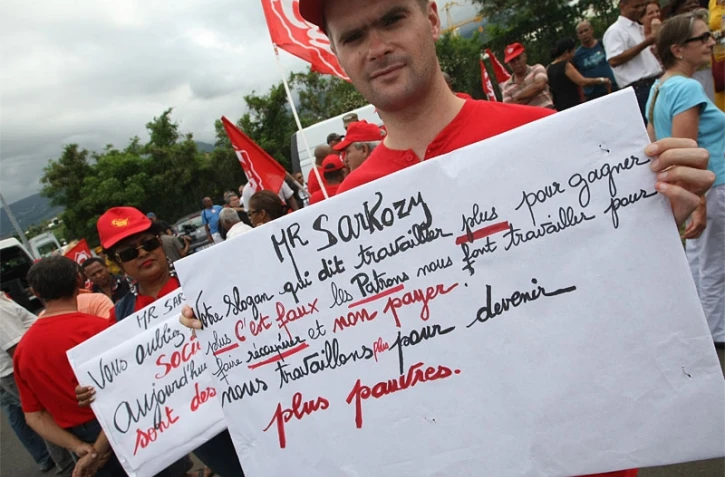 MR SarKozy
Votre slogan qui dit travailler plus pour gagner
plus C'est faux les Patrons nous font travailler pour
faire récupérer et non payer.
nous travaillons plus pour devenir
plus pauvres.
MR SAR
Vous oubliez
SOCI
aujourd'hui
sont des